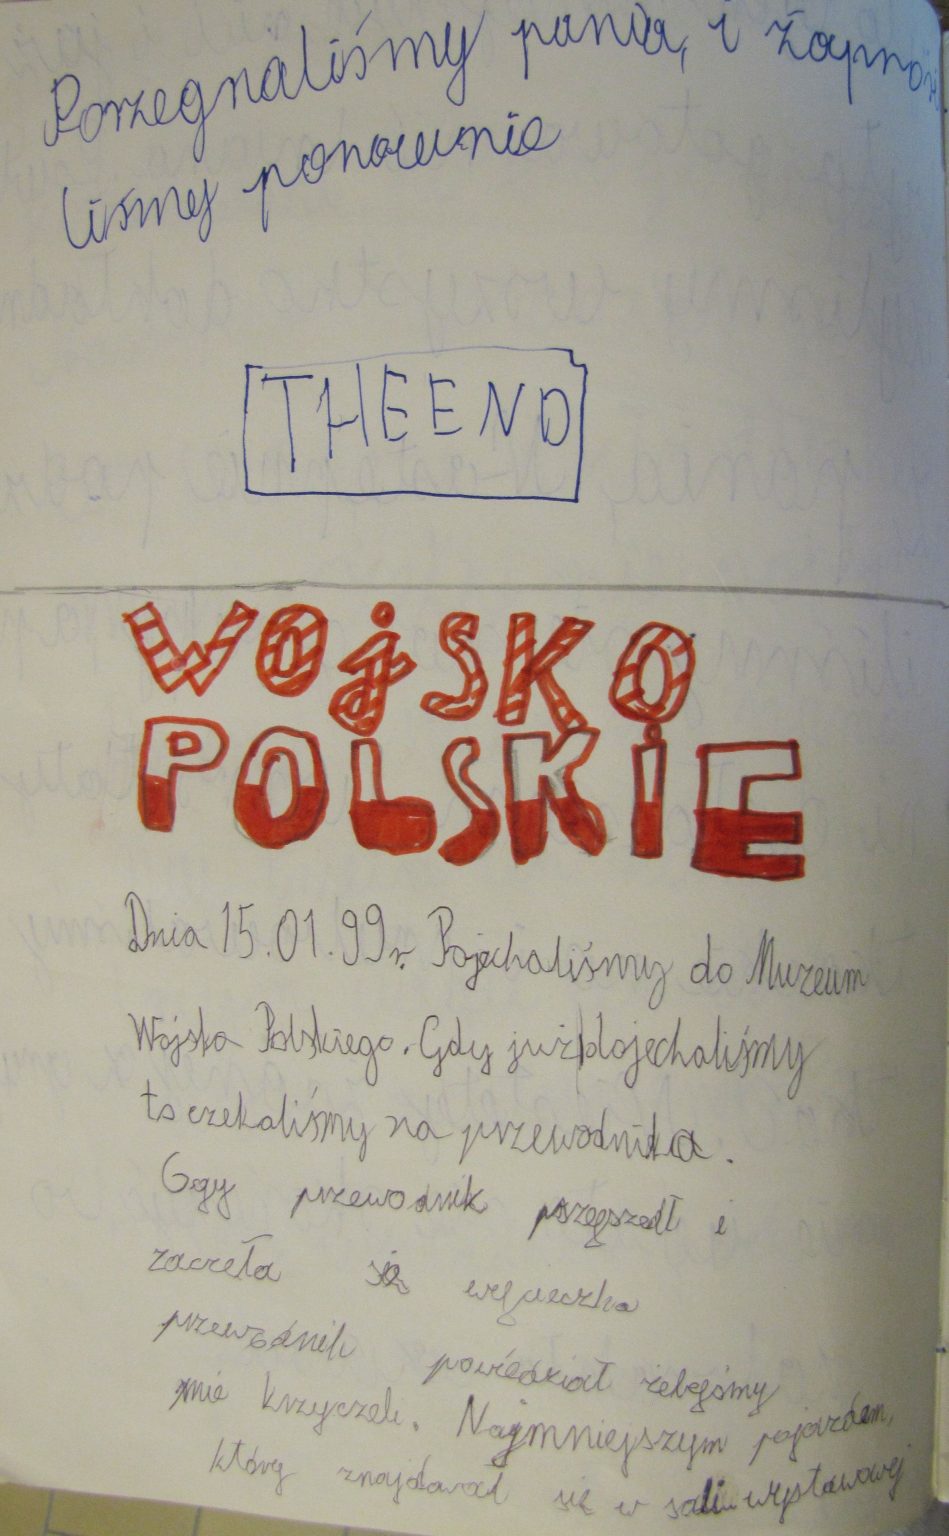 Porzegnaliśmy panią, i żaprosi
liśmy ponownie
THE END
WOjSKO
POLSKiE
Dnia 15.01.99r. Pojechaliśmy do Muzeum
Wojska Polskiego. Gdy już dojechaliśmy
to czekaliśmy na przewodnika.
Gdy przewodnik przyszedł i
zaczeła się wycieczka
przewodnik powiedział żebyśmy
nie krzyczeli. Najmniejszym pojazdem,
który znajdował się w sali wystawowej